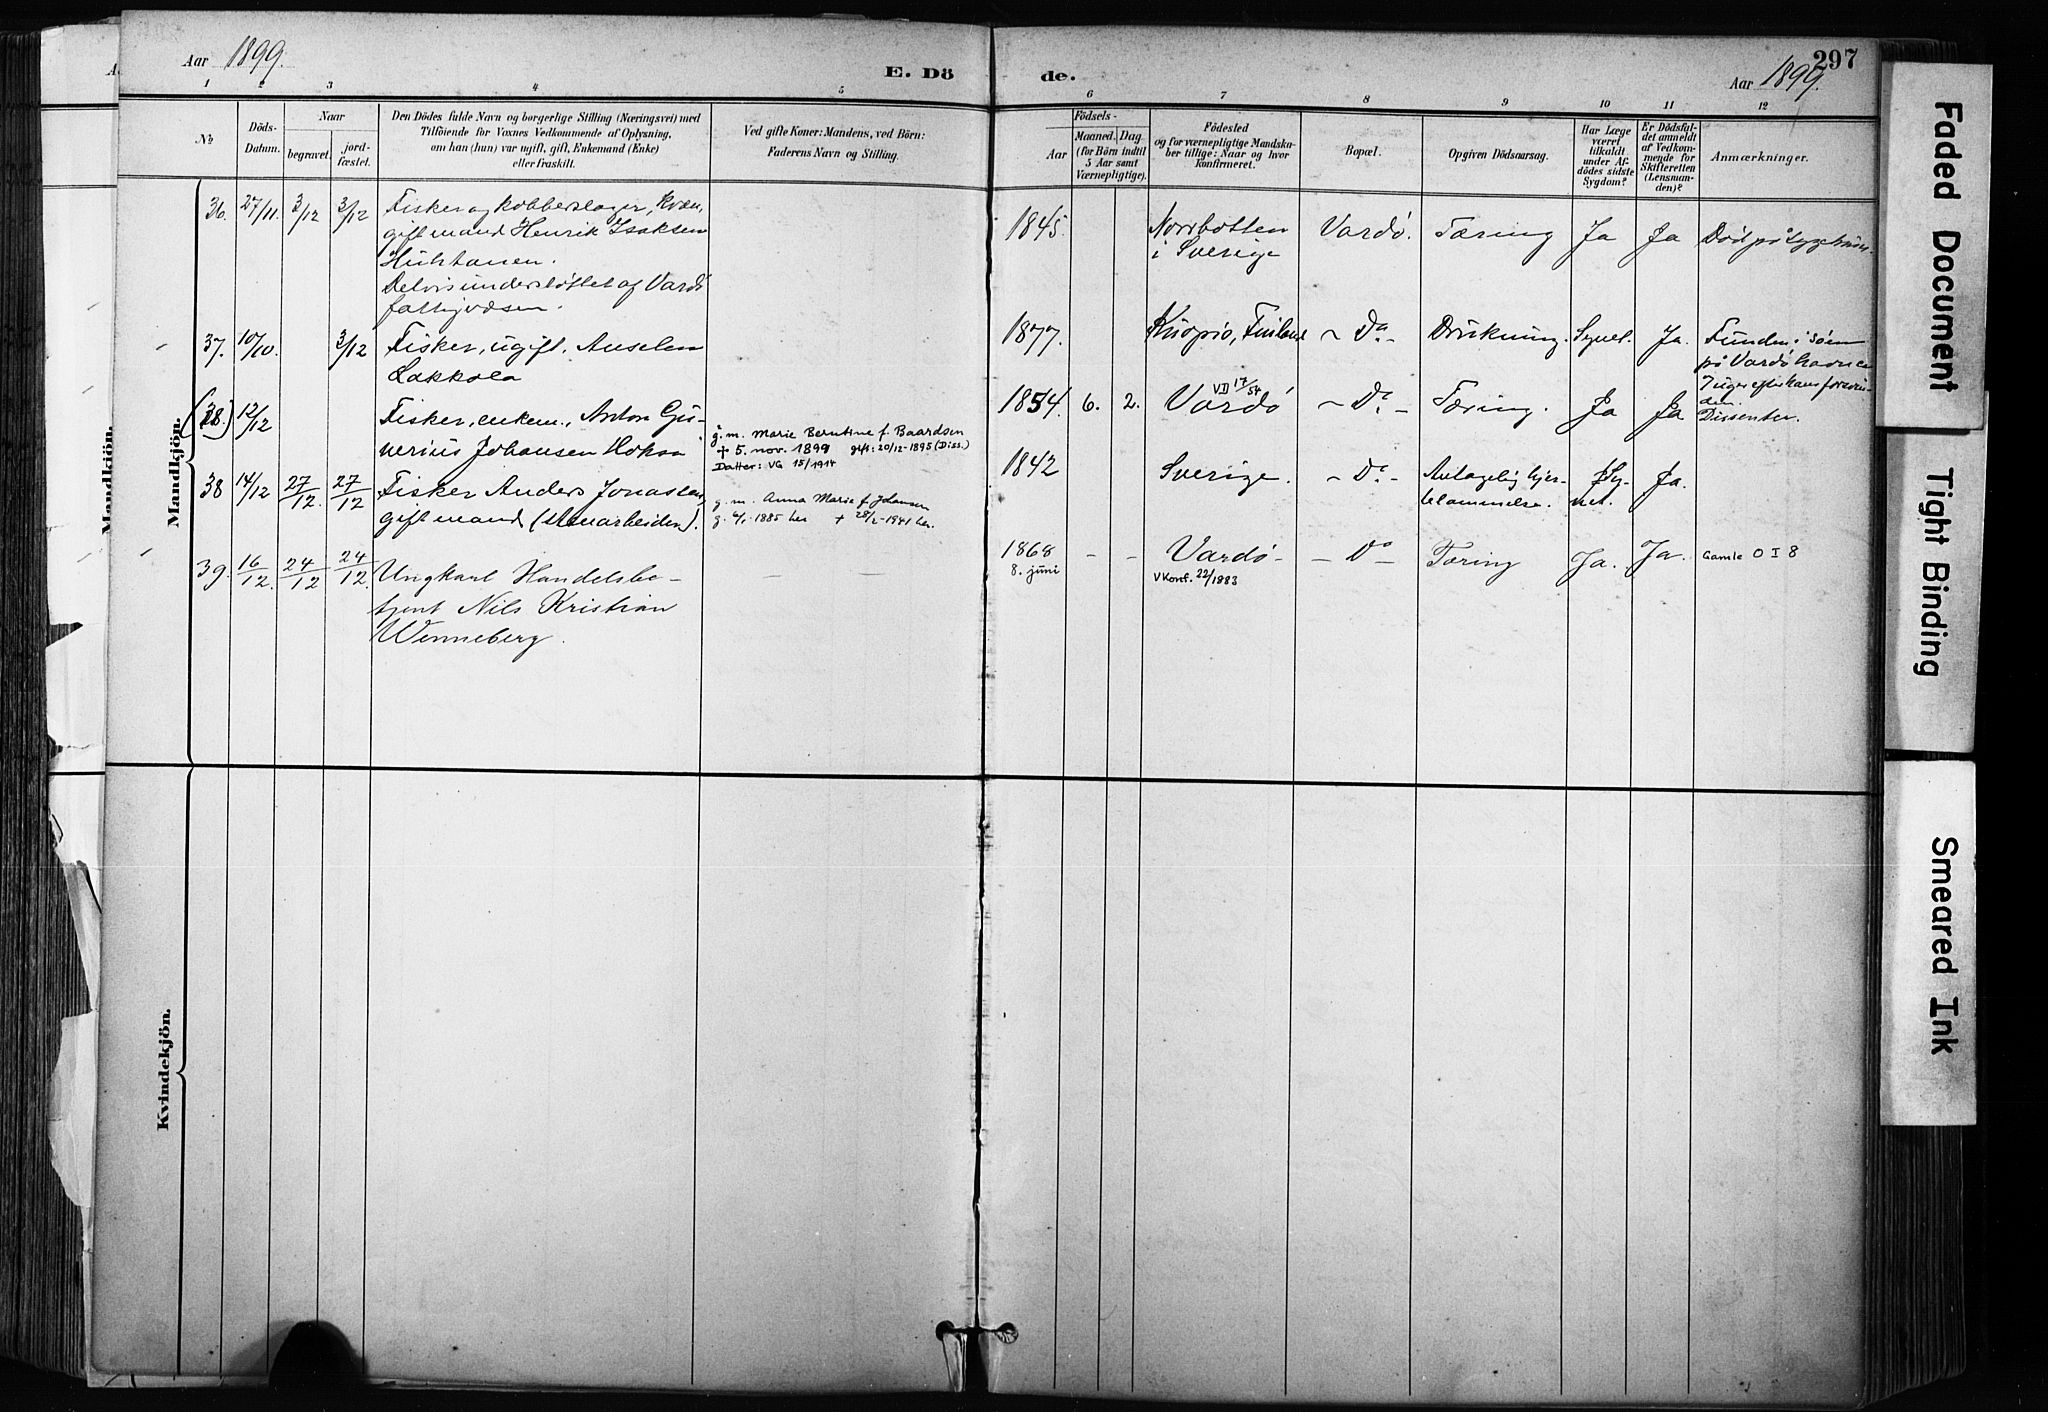 Aar 1899.
E. Döde.
Aar 1899.
297
1 2 3 4 5 6 7 8 9 10 11 12
№
Döds-Datum.
Naar
begravet.
jord-fæstet.
Den Dödes fulde Navn og borgerlige Stilling (Næringsvei) med
Tilföiende for Voxnes Vedkommende af Oplysning,
om han (hun) var ugift, gift, Enkemand (Enke)
eller fraskilt.
Ved gifte Koner: Mandens, ved Börn:
Faderens Navn og Stilling.
Födsels-
Aar
Maaned. Dag
(for Börn indtil
5 Aar samt
Værnepligtige).
Födested
og for værnepligtige Mandska-
ber tillige: Naar og hvor
konfirmeret.
Bopæl.
Opgiven Dödsaarsag.
Har Læge
været
tilkaldt
under Af-
dödes sidste
Sygdom?
Er Dödsfal-
det anmeldt
af Vedkom-
mende for
Skifteretten
(Lensman-
den)?
Anmærkninger.
Mandkjön.
Mandkjön.
36. 27/11. 3/12 3/12 Fisker og kobberslager, kvæn,
gift mand Henrik Isaksen
Huhtanen.
Delvis understøttet af Vardø
fattigvæsen.
1845. Norrbotten
i Sverige
Vardø. Tæring Ja Ja Død på sygehuset.
37. 10/10. 3/12 Fisker, ugift,
Lakkola
1877. Kuopio, Finland – Do – Drukning. Synet. Ja. Funden i søen
på Vardø havn
Dissenter.
(38.) 12/12 Fisker, enkem., Anton
Johansen
g. m. Marie Berntine f. Baardsen
+ 5. nov. 1899 gift: 20/12-1895 (Diss.)
Datter: VG 15/1914
1854. 6. 2. VD 17/54
Vardø – Do – Tæring. Ja Ja
38 14/12 27/12. 27/12 Fisker Anders Jonassen,
gift mand (stenarbeider).
g. m. Anna Marie f. Johansen
g. 4/1-1885 her + 28/2-1941 her.
1842 Sverige. – Do – Antagelig hjer-
telammelse. Sy-
net. Ja.
39. 16/12. 24/12 24/12. Ungkarl Handelsbe-
tjent Nils Kristian
Wenneberg.
– –
1868 - - Vardø – Do – Tæring Ja. Ja. Gamle O I 8
8. juni V Konf. 22/1883
Kvindekjön.
Faded Document
Tight Binding
Smeared Ink